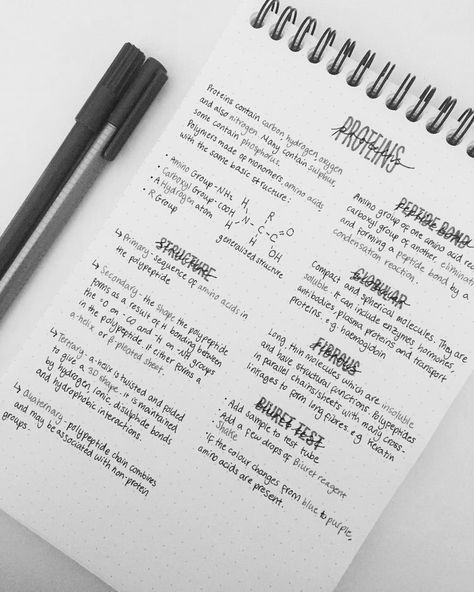 PROTEINS
Proteins contain carbon, hydrogen, oxygen
and also nitrogen. Many contain sulphur,
some contain phosphorus.
Polymers made of monomers, amino acids
with the same basic structure:
• Amino Group - NH₂
• Carboxyl Group - COOH
• A Hydrogen atom
• R Group
H R
N C C O
H H OH
generalised structure
STRUCTURE
↳ Primary - sequence of amino acids in
the polypeptide
↳ Secondary - the shape the polypeptide
forms as a result of H bonding between
the =O on -CO and -H on -NH groups
in the polypeptide. It either forms a
α-helix or β-pleated sheet.
↳ Tertiary - α-helix is twisted and folded
to give a 3D shape. It is maintained
by hydrogen, ionic, disulphide bonds
and hydrophobic interactions.
↳ Quaternary - polypeptide chain combines
and may be associated with non-protein
groups.
PEPTIDE BOND
Amino group of one amino acid
carboxyl group of another,
and forming a peptide bond by a
condensation reaction.
GLOBULAR
Compact and spherical molecules. They are
soluble. It can include enzymes, hormones,
antibodies, plasma proteins and transport
proteins. e.g. haemoglobin
FIBROUS
Long, thin molecules which are insoluble
and have structural functions. Polypeptides
in parallel chains/sheets with many cross-
linkages to form long fibres. e.g. Keratin
BIURET TEST
· Add sample to test tube
· Add a few drops of Biuret reagent
· Shake
· If the colour changes from blue to purple,
amino acids are present.